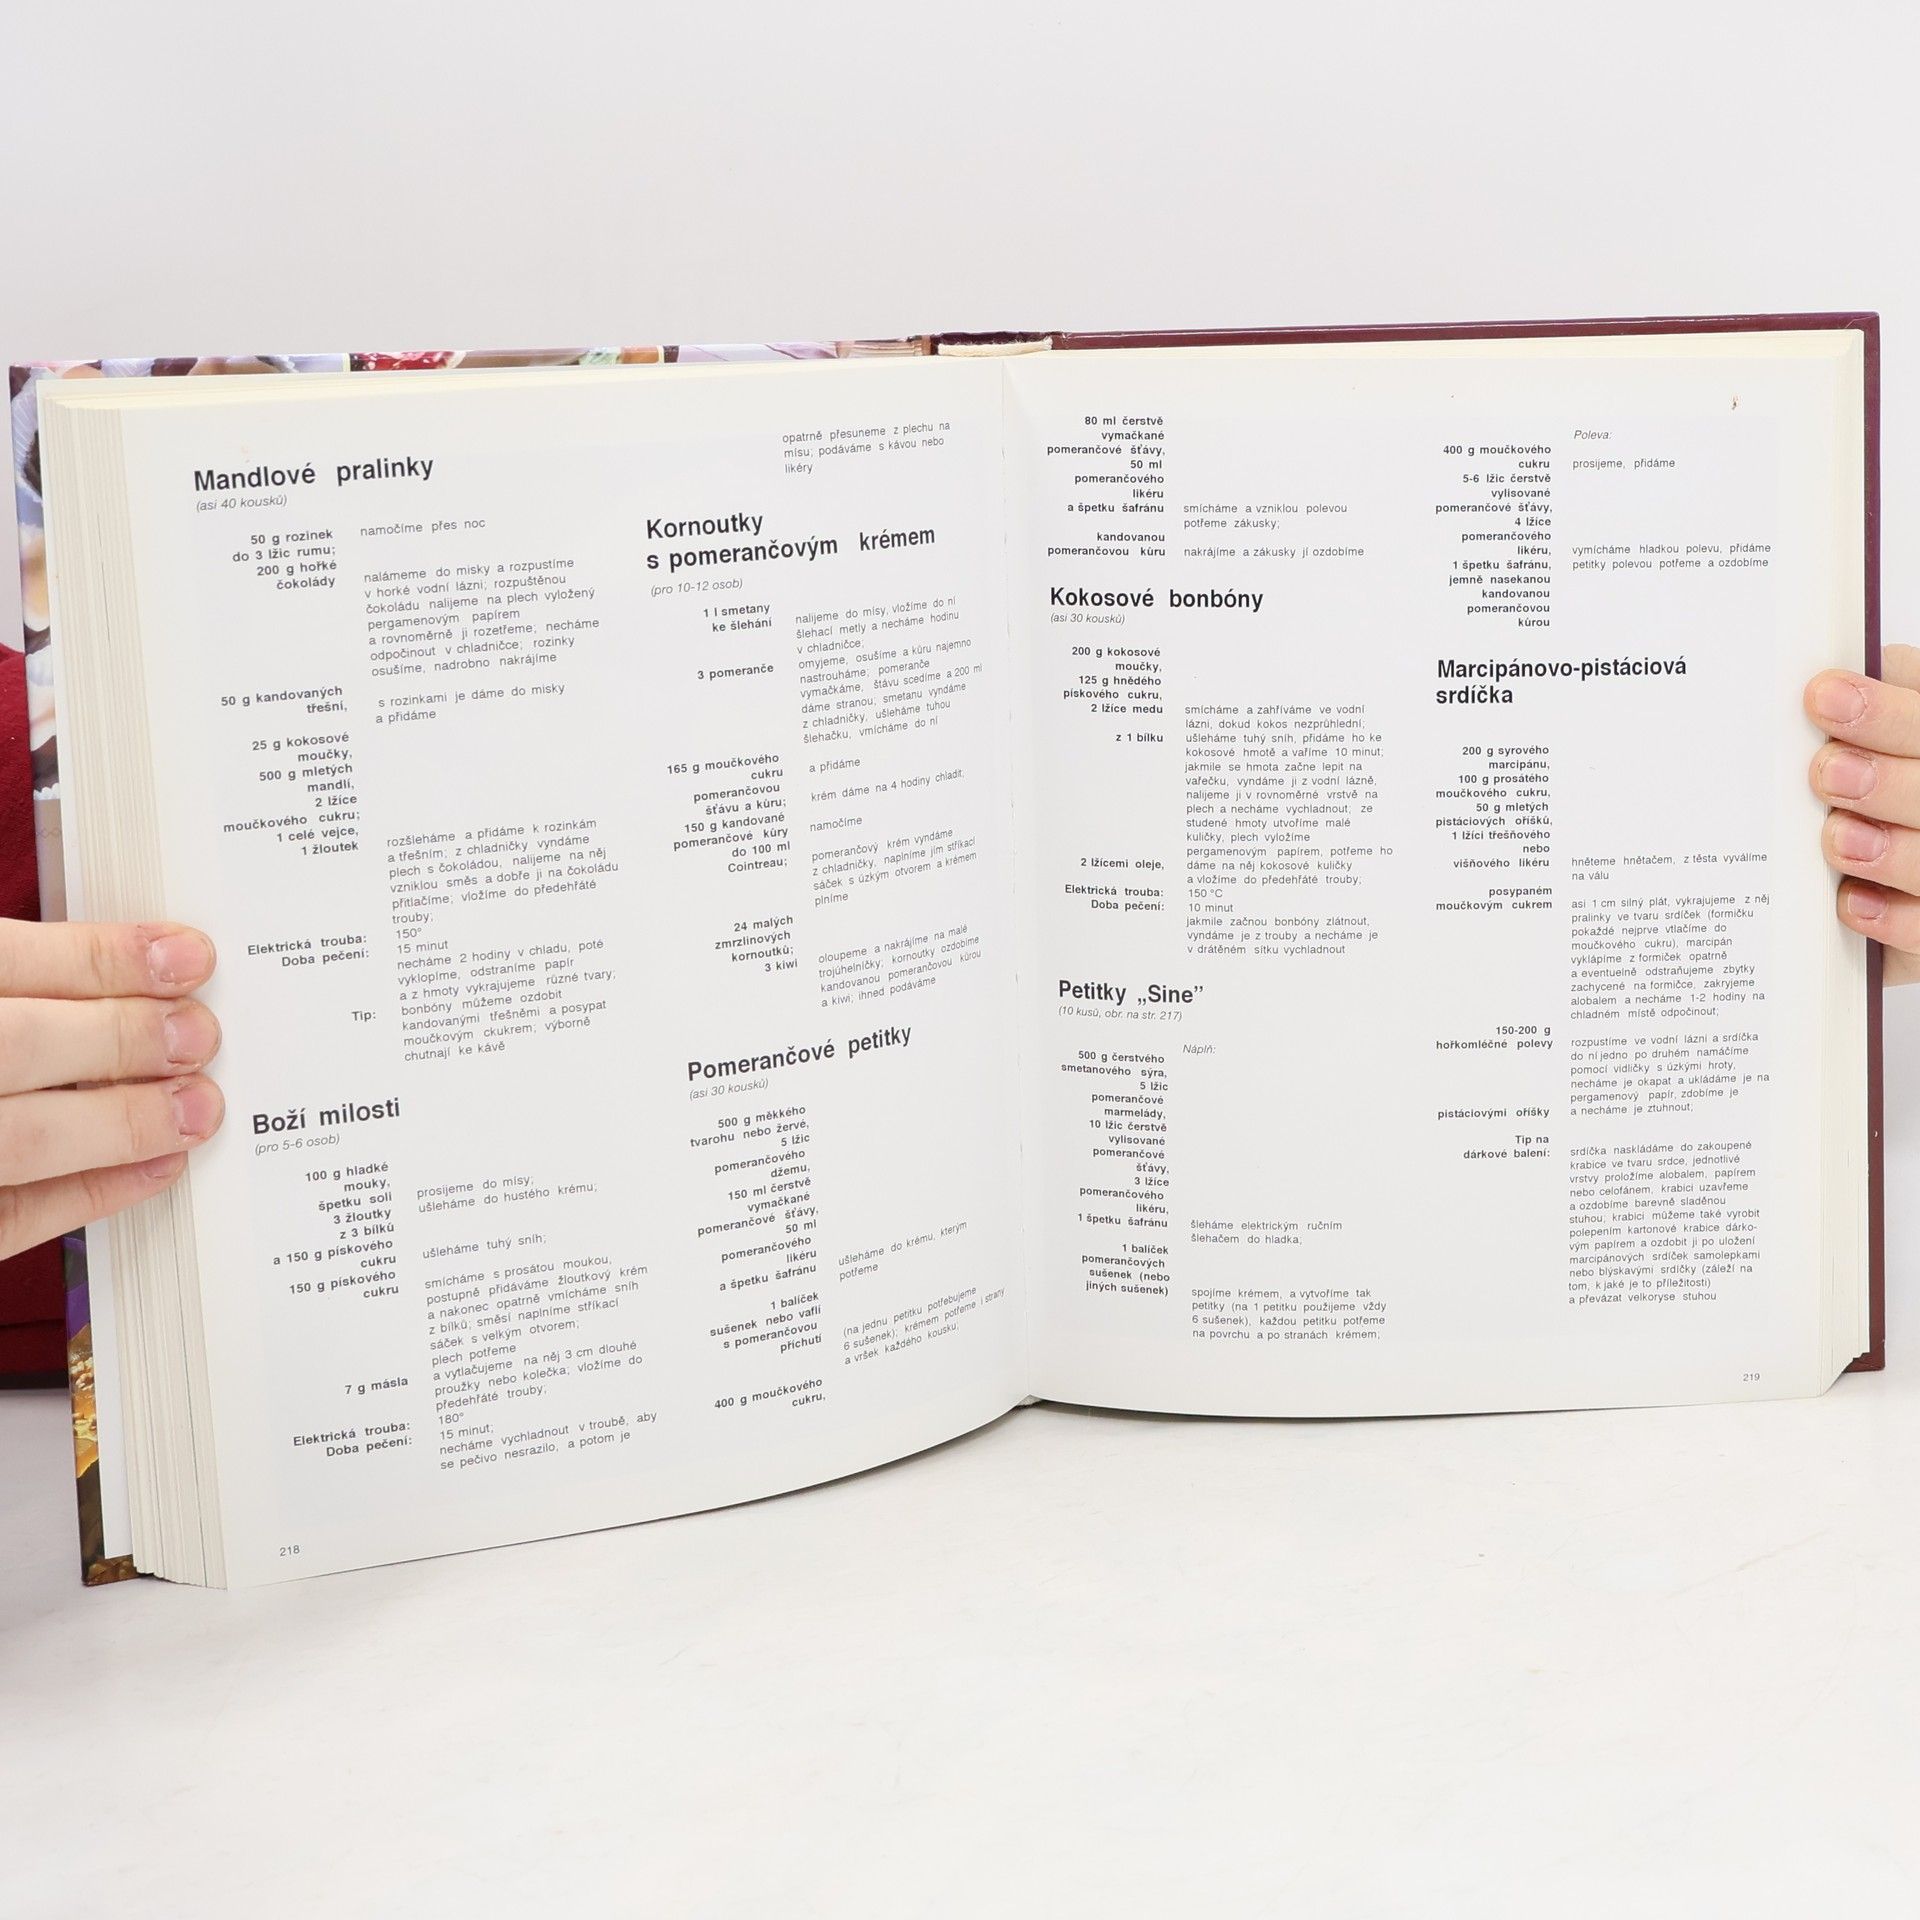 Mandlové pralinky
(asi 40 kousků)
50 g rozinek
do 3 lžic rumu;
200 g hořké
čokolády
namočíme přes noc
nalámeme do misky a rozpustíme
v horké vodní lázni; rozpuštěnou
čokoládu nalijeme na plech vyložený
pergamenovým papírem
a rovnoměrně ji rozetřeme; necháme
odpočinout v chladničce; rozinky
osušíme, nadrobno nakrájíme
50 g kandovaných
třešní,
s rozinkami je dáme do misky
a přidáme
25 g kokosové
moučky,
500 g mletých
mandlí,
2 lžíce
moučkového cukru;
1 celé vejce,
1 žloutek
rozšleháme a přidáme k rozinkám
a třešním; z chladničky vyndáme
plech s čokoládou, nalijeme na něj
vzniklou směs a dobře ji na čokoládu
přitlačíme; vložíme do předehřáté
trouby;
Elektrická trouba:
150°
Doba pečení:
15 minut
necháme 2 hodiny v chladu, poté
vyklopíme, odstraníme papír
a z hmoty vykrajujeme různé tvary;
Tip:
bonbóny můžeme ozdobit
kandovanými třešněmi a posypat
moučkovým ckukrem; výborně
chutnají ke kávě
Boží milosti
(pro 5-6 osob)
100 g hladké
mouky,
špetku soli
3 žloutky
z 3 bílků
a 150 g pískového
cukru
150 g pískového
cukru
prosijeme do mísy;
ušleháme do hustého krému;
ušleháme tuhý sníh;
smícháme s prosátou moukou,
postupně přidáváme žloutkový krém
a nakonec opatrně vmícháme sníh
z bílků; směsí naplníme stříkací
sáček s velkým otvorem;
plech potřeme
7 g másla
a vytlačujeme na něj 3 cm dlouhé
proužky nebo kolečka; vložíme do
předehřáté trouby;
Elektrická trouba:
180°
Doba pečení:
15 minut;
necháme vychladnout v troubě, aby
se pečivo nesrazilo, a potom je
218
opatrně přesuneme z plechu na
mísu; podáváme s kávou nebo
likéry
Kornoutky
s pomerančovým krémem
(pro 10-12 osob)
1 l smetany
ke šlehání
nalijeme do mísy, vložíme do ní
šlehací metly a necháme hodinu
v chladničce;
3 pomeranče
omyjeme, osušíme a kůru najemno
nastrouháme; pomeranče
vymačkáme, šťávu scedíme a 200 ml
dáme stranou; smetanu vyndáme
z chladničky, ušleháme tuhou
šlehačku, vmícháme do ní
165 g moučkového
cukru
a přidáme
pomerančovou
šťávu a kůru;
krém dáme na 4 hodiny chladit;
150 g kandované
pomerančové kůry
do 100 ml
Cointreau;
namočíme
pomerančový krém vyndáme
z chladničky, naplníme jím stříkací
sáček s úzkým otvorem a krémem
plníme
24 malých
zmrzlinových
kornoutků;
3 kiwi
oloupeme a nakrájíme na malé
trojúhelníčky; kornoutky ozdobíme
kandovanou pomerančovou kůrou
a kiwi; ihned podáváme
Pomerančové petitky
(asi 30 kousků)
500 g měkkého
tvarohu nebo žervé,
5 lžic
pomerančového
džemu,
150 ml čerstvě
vymačkané
pomerančové šťávy,
50 ml
pomerančového
likéru
a špetku šafránu
ušleháme do krému, kterým
potřeme
1 balíček
sušenek nebo vaflí
s pomerančovou
příchutí
(na jednu petitku potřebujeme
6 sušenek); krémem potřeme i strany
a vršek každého kousku;
400 g moučkového
cukru,
80 ml čerstvě
vymačkané
pomerančové šťávy,
50 ml
pomerančového
likéru
a špetku šafránu
smícháme a vzniklou polevou
potřeme zákusky;
kandovanou
pomerančovou kůru
nakrájíme a zákusky jí ozdobíme
Kokosové bonbóny
(asi 30 kousků)
200 g kokosové
moučky,
125 g hnědého
pískového cukru,
2 lžíce medu
z 1 bílku
smícháme a zahříváme ve vodní
lázni, dokud kokos nezprůhlední;
ušleháme tuhý sníh, přidáme ho ke
kokosové hmotě a vaříme 10 minut;
jakmile se hmota začne lepit na
vařečku, vyndáme ji z vodní lázně,
nalijeme ji v rovnoměrné vrstvě na
plech a necháme vychladnout; ze
studené hmoty utvoříme malé
kuličky, plech vyložíme
pergamenovým papírem, potřeme ho
2 lžícemi oleje,
dáme na něj kokosové kuličky
a vložíme do předehřáté trouby;
Elektrická trouba:
150 °C
Doba pečení:
10 minut
jakmile začnou bonbóny zlátnout,
vyndáme je z trouby a necháme je
v drátěném sítku vychladnout
Petitky „Sine”
(10 kusů, obr. na str. 217)
Náplň:
500 g čerstvého
smetanového sýra,
5 lžic
pomerančové
marmelády,
10 lžic čerstvě
vylisované
pomerančové
šťávy,
3 lžíce
pomerančového
likéru,
1 špetku šafránu
šleháme elektrickým ručním
šlehačem do hladka;
1 balíček
pomerančových
sušenek (nebo
jiných sušenek)
spojíme krémem, a vytvoříme tak
petitky (na 1 petitku použijeme vždy
6 sušenek), každou petitku potřeme
na povrchu a po stranách krémem;
Poleva:
400 g moučkového
cukru
prosijeme, přidáme
5-6 lžic čerstvě
vylisované
pomerančové šťávy,
4 lžíce
pomerančového
likéru,
1 špetku šafránu,
vymícháme hladkou polevu, přidáme
petitky polevou potřeme a ozdobíme
jemně nasekanou
kandovanou
pomerančovou
kůrou
Marcipánovo-pistáciová
srdíčka
200 g syrového
marcipánu,
100 g prosátého
moučkového cukru,
50 g mletých
pistáciových oříšků,
1 lžíci třešňového
nebo
višňového likéru
hněteme hnětačem, z těsta vyválíme
na válu
posypaném
moučkovým cukrem
asi 1 cm silný plát, vykrajujeme z něj
pralinky ve tvaru srdíček (formičku
pokaždé nejprve vtlačíme do
moučkového cukru), marcipán
vyklápíme z formiček opatrně
a eventuelně odstraňujeme zbytky
zachycené na formičce, zakryjeme
alobalem a necháme 1-2 hodiny na
chladném místě odpočinout;
150-200 g
hořkomléčné polevy
rozpustíme ve vodní lázni a srdíčka
do ní jedno po druhém namáčíme
pomocí vidličky s úzkými hroty,
necháme je okapat a ukládáme je na
pergamenový papír, zdobíme je
pistáciovými oříšky
a necháme je ztuhnout;
Tip na
dárkové balení:
srdíčka naskládáme do zakoupené
krabice ve tvaru srdce, jednotlivé
vrstvy proložíme alobalem, papírem
nebo celofánem, krabici uzavřeme
a ozdobíme barevně sladěnou
stuhou; krabici můžeme také vyrobit
polepením kartonové krabice dárko-
vým papírem a ozdobit ji po uložení
marcipánových srdíček samolepkami
nebo blýskavými srdíčky (záleží na
tom, k jaké je to příležitosti)
a převázat velkoryse stuhou
219